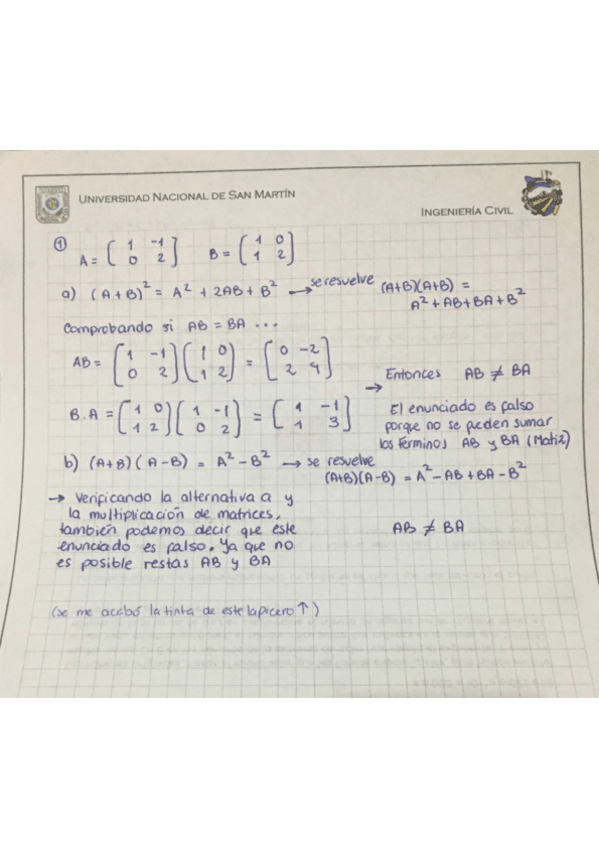 UNIVERSIDAD NACIONAL DE SAN MARTÍN
INGENIERÍA CIVIL
① A = [ 1 -1 ; 0 2 ] B = [ 1 0 ; 1 2 ]
a) (A+B)² = A² + 2AB + B² → se resuelve (A+B)(A+B) =
A² + AB + BA + B²
Comprobando si AB = BA ...
AB = [ 1 -1 ; 0 2 ] [ 1 0 ; 1 2 ] = [ 0 -2 ; 2 4 ]
→ Entonces AB ≠ BA
B.A = [ 1 0 ; 1 2 ] [ 1 -1 ; 0 2 ] = [ 1 -1 ; 1 3 ]
El enunciado es falso
porque no se pueden sumar
los términos AB y BA (Matiz)
b) (A+B)(A-B) = A² - B² → se resuelve
(A+B)(A-B) = A² - AB + BA - B²
→ Verificando la alternativa a y
la multiplicación de matrices,
también podemos decir que este
enunciado es falso. Ya que no
es posible restas AB y BA
AB ≠ BA
(se me acabó la tinta de este lapicero ↑)